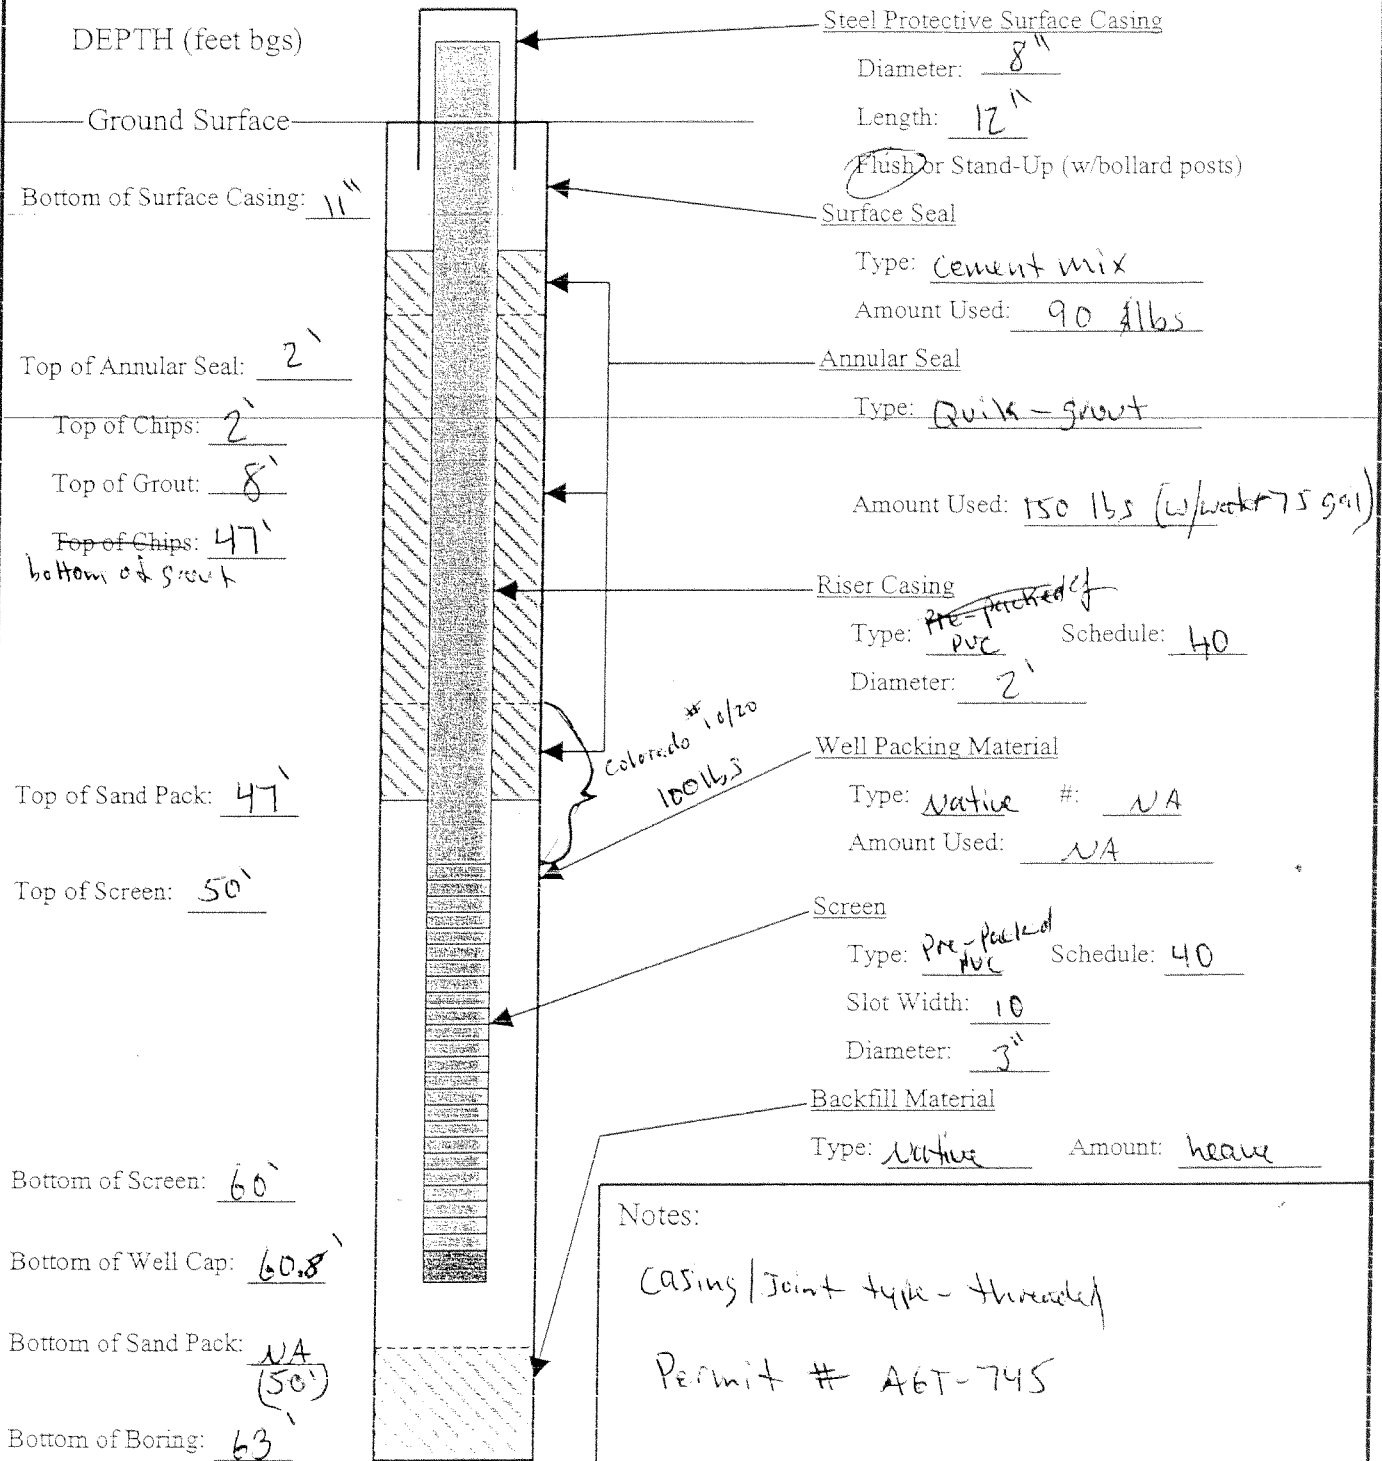 DEPTH (feet bgs)
Ground Surface
Bottom of Surface Casing: 11"
Top of Annular Seal: 2'
Top of Chips: 2'
Top of Grout: 8'
Top of Chips: 47'
bottom of grout
Top of Sand Pack: 47'
Top of Screen: 50'
Bottom of Screen: 60'
Bottom of Well Cap: 60.8'
Bottom of Sand Pack: NA
(50')
Bottom of Boring: 63'
Colorado #10/20
100 lbs
Steel Protective Surface Casing
Diameter: 8"
Length: 12"
Flush or Stand-Up (w/bollard posts)
Surface Seal
Type: Cement mix
Amount Used: 90 lbs
Annular Seal
Type: Quik-grout
Amount Used: 150 lbs (w/water 75 gal)
Riser Casing
Pre-packed
Type: PVC Schedule: 40
Diameter: 2'
Well Packing Material
Type: Native #: NA
Amount Used: NA
Screen
Type: Pre-Packed PVC Schedule: 40
Slot Width: 10
Diameter: 3"
Backfill Material
Type: Native Amount: heave
Notes:
Casing/Joint type - threaded
Permit # AGT-745